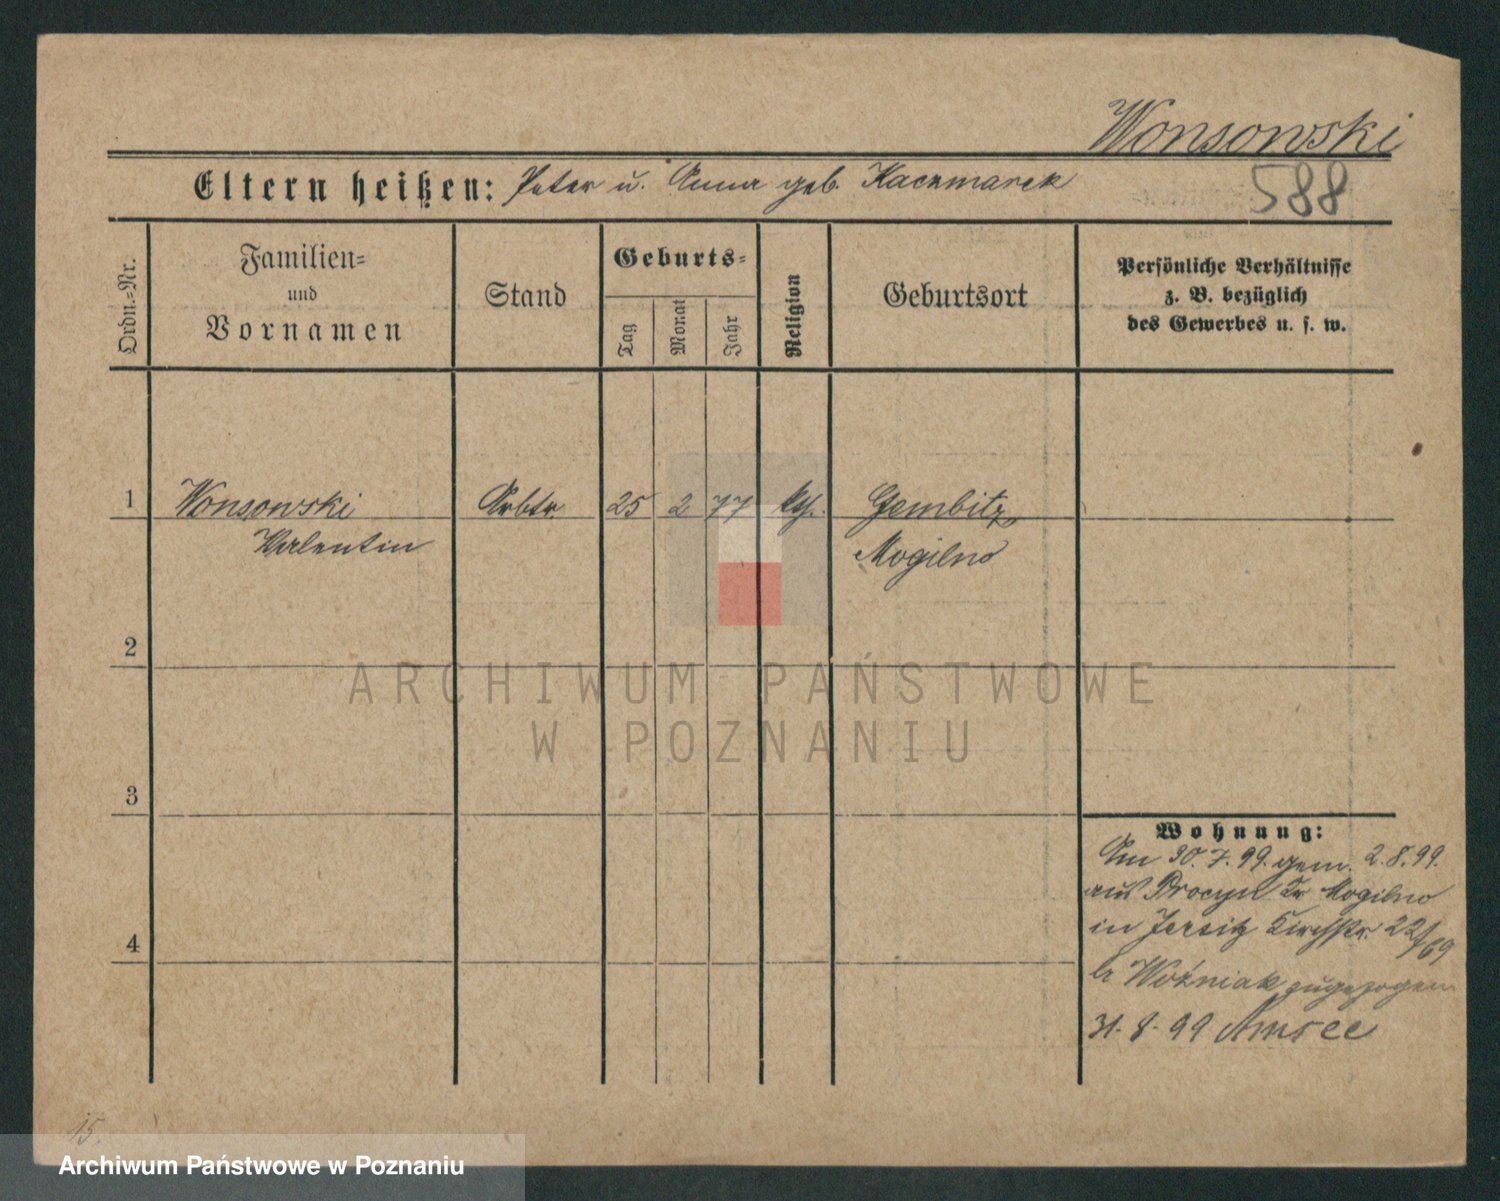 Wonsowski
Eltern heißen: Peter u. Anna geb. Kaczmarek
588
Ordn.-Nr.
Familien-
und
Vornamen
Stand
Geburts-
Tag
Monat
Jahr
Religion
Geburtsort
Persönliche Verhältnisse
z. B. bezüglich
des Gewerbes u. s. w.
1 Wonsowski Arbtr. 25 2 77 kth. Gembitz
Valentin Mogilno
2
ARCHIWUM PAŃSTWOWE
W POZNANIU
3
Wohnung:
Am 30.7.99. gem. 2.8.99.
aus Procyn Kr Mogilno
in Jersitz Kirchstr. 22/69
4
b Woźniak zugezogen
31.8.99 Amsee
15.
Archiwum Państwowe w Poznaniu